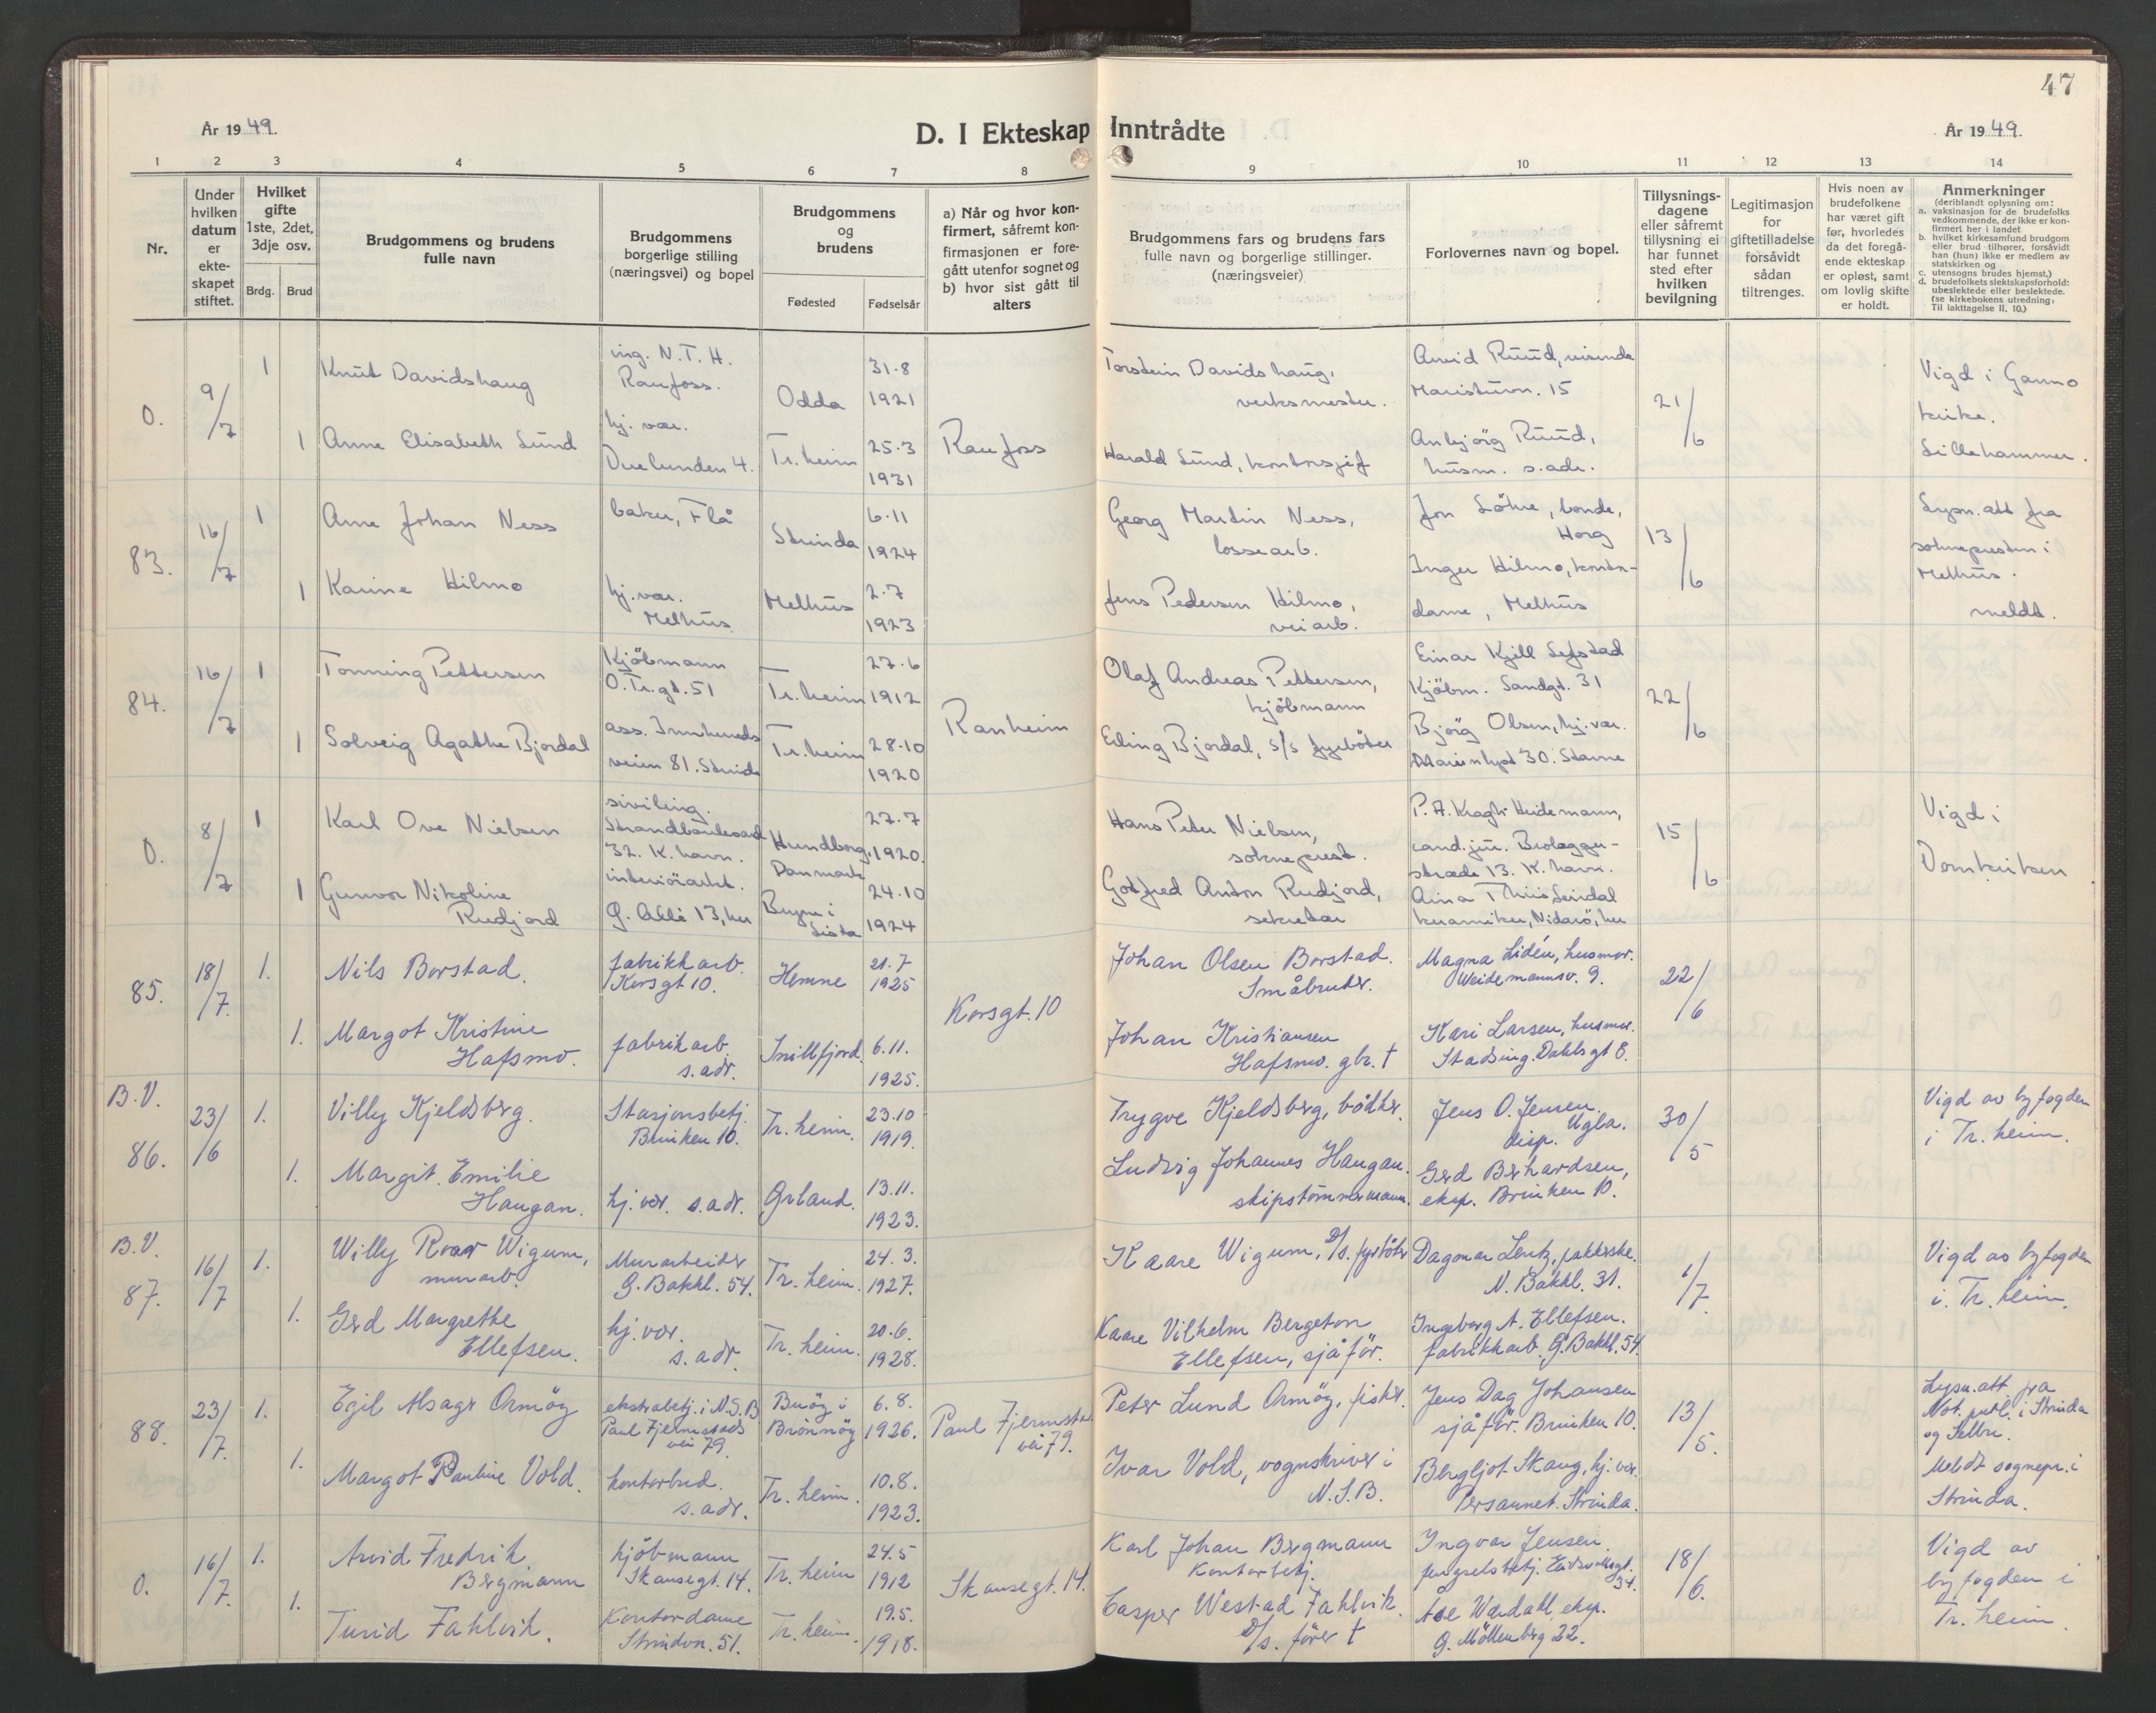 47
År 1949.
D. I Ekteskap Inntrådte
År 1949.
1 2 3 4 5 6 7 8 9 10 11 12 13 14
Nr.
Under hvilken datum er ekteskapet stiftet.
Hvilket gifte 1ste, 2det, 3dje osv.
Brdg. Brud
Brudgommens og brudens fulle navn
Brudgommens borgerlige stilling (næringsvei) og bopel
Brudgommens og brudens
Fødested Fødselsår
a) Når og hvor konfirmert, såfremt konfirmasjonen er foregått utenfor sognet og b) hvor sist gått til alters
Brudgommens fars og brudens fars fulle navn og borgerlige stillinger. (næringsveier)
Forlovernes navn og bopel.
Tillysningsdagene eller såfremt tillysning ei har funnet sted efter hvilken bevilgning
Legitimasjon for giftetilladelse forsåvidt sådan tiltrenges.
Hvis noen av brudefolkene har været gift før, hvorledes da det foregående ekteskap er opløst, samt om lovlig skifte er holdt.
Anmerkninger
(deriblandt oplysning om:
a. vaksinasjon for de brudefolks vedkommende, der ikke er konfirmert her i landet
b. hvilket kirkesamfund brudgom eller brud tilhører, forsåvidt han (hun) ikke er medlem av statskirken og
c. utensogns brudes hjemst.)
d. brudefolkets slektskapsforhold: ubeslektede eller beslektede. (se kirkebokens utredning: Til iakttagelse II, 10.)
0. 9/7 1 Knut Davidshaug
ing. N.T.H. Raufoss.
Odda 31.8 1921
Torstein Davidshaug, verksmester.
Arvid Ruud, Maristuvn. 15
21/6
Vigd i Garmo kirke. Lillehammer.
1 Anne Elisabeth Lund
hj. vær. Duelunden 4.
Tr.heim 25.3 1931
Raufoss
Harald Lund, kontorsjef
Anbjörg Ruud, husm. s.adr.
83. 16/7 1 Arne Johan Ness
baker, Flå
Strinda 6.11 1924
Georg Martin Ness, lossearb.
Jon Löhre, bonde, Horg
13/6
Lysn.att fra soknepresten i Melhus. meldt.
1 Karine Hilmo
hj.vær. Melhus
Melhus 2.7 1923
Jens Pedersen Hilmo, veiarb.
Inger Hilmo, kontordame, Melhus
84. 16/7 1 Tonning Pettersen
Kjöbmann Ö.Tr.gt. 51
Tr.heim 1912 27.6
Ranheim
Olaf Andreas Pettersen, kjöbmann
Einar Kjell Sefstad Kjöbm. Sandgt. 31
22/6
1 Solveig Agathe Bjordal
ass. Innherredsveien 81. Strinda
Tr.heim 28.10 1920
Erling Bjordal, s/s fyrböter
Björg Olsen, hj.vær. 30. Stavne
0. 8/7 1 Karl Ove Nielsen
siviling. Strandboulevard 32. K.havn.
Hundborg, Danmark 27.7 1920.
Hans Peter Nielsen, sokneprest.
P.A. Kragh Heidemann, cand.jur. Brolæggerstræde 13. K.havn.
15/6
Vigd i Domkirken
1 Gunvor Nikoline Rudjord
interiörarkt. G. Allé 13, her
Bryne i Lista 24.10 1924
Gotfred Anton Rudjord, sekretær
Aina Thiis Leirdal keramiker, Nidarö, her
85. 18/7. 1. Nils Borstad.
fabrikkarb. Korsgt 10.
Hemne 21.7 1925
Korsgt. 10
Johan Olsen Borstad. Småbruker.
Magna Lidén, husmor. Weidemannsv. 9.
22/6
1. Margot Kristine Hafsmo.
fabrikarb. s.adr.
Snillfjord. 6.11. 1925.
Johan Kristiansen Hafsmo. gbr. †
Kari Larsen, husmor. Stadsing. Dahlsgt 8.
B.V.
86. 23/6 1. Villy Kjeldsberg.
Stasjonsbetj. Brinken 10.
Tr.heim. 23.10 1919.
Trygve Kjeldsberg, bödker.
Jens O. Jensen. disp. Ugla.
30/5
Vigd av byfogden i Tr.heim.
1. Margit Emilie Haugan.
hj.vær. s.adr.
Ørland. 13.11. 1923.
Ludvig Johannes Haugan. skipstömmermann.
Gerd Berhardsen, eksp. Brinken 10.
B.V.
87. 16/7 1. Willy Roar Wigum, murarb.
Murarbeider G. Bakkl. 54.
Tr.heim. 24.3. 1927.
Kaare Wigum, D/s. fyrböter
Dagmar Lentz, pakkerske. N. Bakkl. 31.
1/7.
Vigd av byfogden i Tr.heim.
1. Gerd Margrethe Ellefsen.
hj.vær. s.adr.
Tr.heim. 20.6. 1928.
Kaare Vilhelm Bergeton Ellefsen, sjåför.
Ingeborg A. Ellefsen. fabrikkarb. G. Bakkl. 54.
88. 23/7. 1. Egil Alsager Ormöy
ekstrabetj. i N.S.B Paul Fjermstads vei 79
Buöy i Brönnöy 6.8. 1926.
Paul Fjermstads vei 79.
Peter Lund Ormöy, fisker.
Jens Dag Johansen sjåför. Brinken 10.
13/5.
Lysn.att fra Not. publ. i Strinda og Selbu. Meldt sognepr. i Strinda.
1. Margot Pauline Vold.
kontorbud. s.adr.
Tr.heim. 10.8. 1923.
Ivar Vold, vognskriver i N.S.B.
Bergljot Skaug, hj.vær. Persaunet. Strinda.
0. 16/7. 1. Arvid Fredrik Bergmann
kjöbmann Skansegt. 14.
Tr.heim 24.5 1912
Skansegt. 14.
Karl Johan Bergmann Kontorbetj.
Ingvar Jensen. fengselsbetj. Eidsvollsgt. 34.
18/6.
Vigd av byfogden i Tr.heim.
1. Turid Fahlvik.
Kontordame Strindvn. 51.
Tr.heim. 19.5. 1918.
Casper Westad Fahlvik. D/s. förer †
Åse Wærdahl, eksp. G. Möllenberg 22.